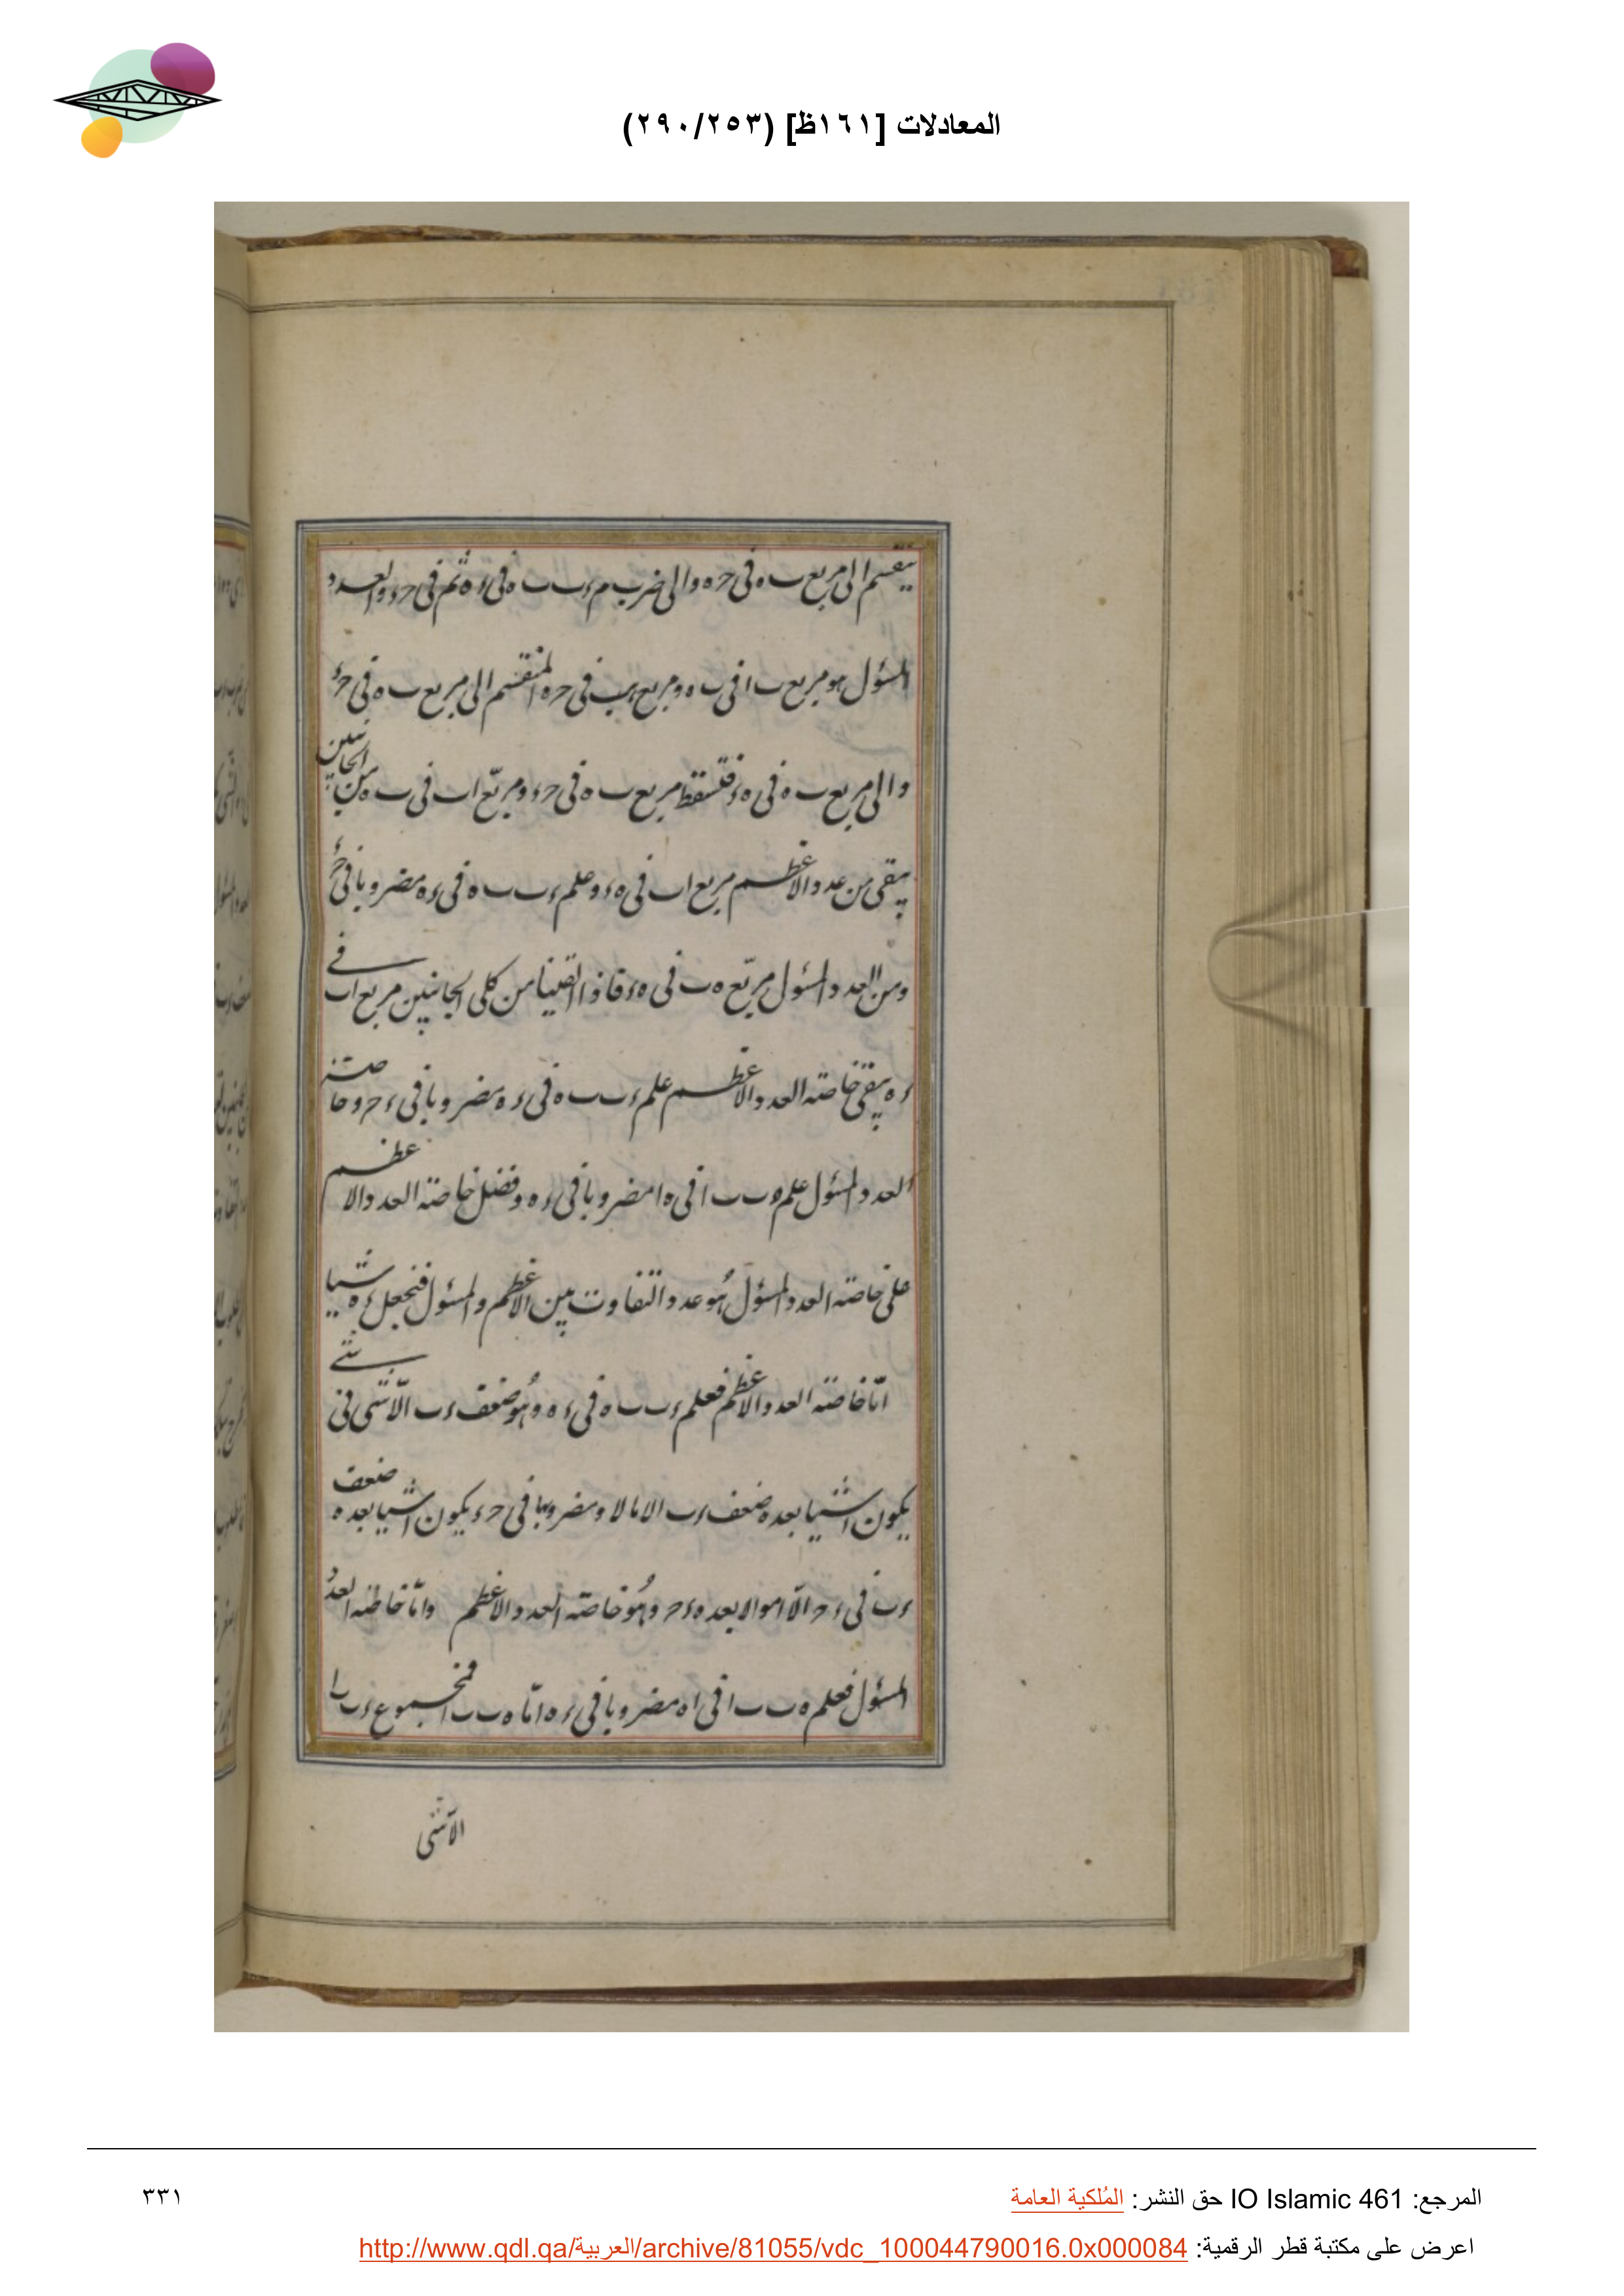 المعادلات [١٦١ظ] (٢٩٠/٢٥٣)
ينقسم الى مربع ب ه فى ح ه والى ضرب م ء ب ب ه فى ء ه ثم فى ح ء والعدد
المسؤل هو مربع ب ا فى ب ه ومربع ه ب فى ح ه المنقسم الى مربع ب ه فى ح ء
والى مربع ب ه فى ه ء فتسقط مربع ب ه فى ح ء ومربّع ا ب فى ب ه من الجانبين
يبقى من عدد الاعظم مربع ا ب فى ه ء وعلم ء ب ب ه فى ء ه مضروبا فى ح ء
ومن العدد المسؤل مربّع ه ب فى ه ء فاذا القينا من كلى الجانبين مربع ا ب فے
ء ه يبقى خاصّة العدد الاعظم علم ء ب ب ه فى ء ه مضروبا فى ء ح وخاصّة
العدد المسؤل علم ه ب ب ا فى ه ا مضروبا فى ء ه وفضل خاصّة العدد الاعظم
على خاصّة العدد المسؤل هو عدد التفاوت بين الاعظم والمسؤل فنجعل ء ه شيا
امّا خاصّة العدد الاعظم فعلم ء ب ب ه فى ء ه وهو ضعف ء ب الّا شى فى شے
يكون اشيا بعدة ضعف ء ب الا مالا ومضروبها فى ح ء يكون اشيا بعدة ضعف
ء ب فى ء ح الّا اموالا بعدة ء ح وهو خاصّة العدد الاعظم وامّا خاصّة العدد
المسؤل فعلم ه ب ب ا فى ا ه مضروبا فى ء ه امّا ه ب ب ا فمجموع ء ب ب ا
الّا شى
المرجع: IO Islamic 461 حق النشر: المُلكية العامة
٣٣١
اعرض على مكتبة قطر الرقمية: http://www.qdl.qa/العربية/archive/81055/vdc_100044790016.0x000084